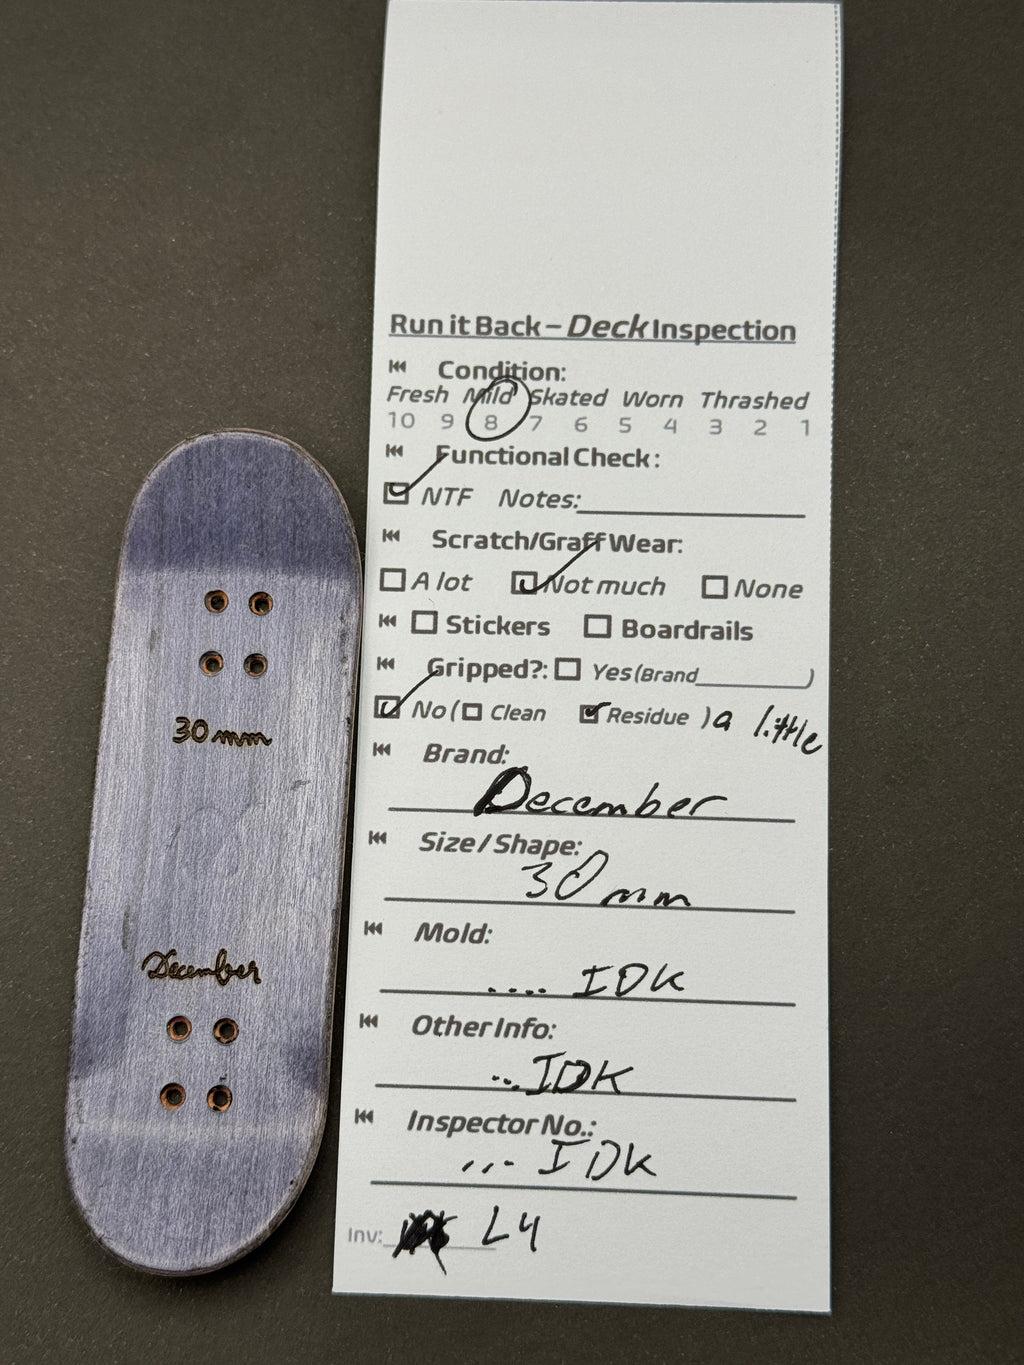 Run it Back – Deck Inspection
Condition:
Fresh Mild Skated Worn Thrashed
10 9 8 7 6 5 4 3 2 1
Functional Check:
NTF Notes:
Scratch/Graff Wear:
A lot Not much None
Stickers Boardrails
Gripped?: Yes (Brand )
No ( Clean Residue ) a little
Brand:
December
Size / Shape:
30 mm
Mold:
.... IDK
Other Info:
... IDK
Inspector No.:
... IDK
Inv: L4
30 mm
December